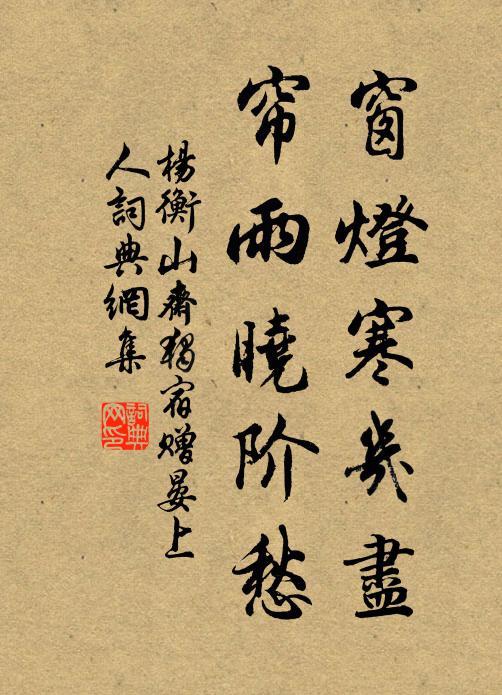 窗燈寒几盡
帘雨曉阶愁
楊衡山齋獨宿贈晏上
人詞典網集
詞典
网印